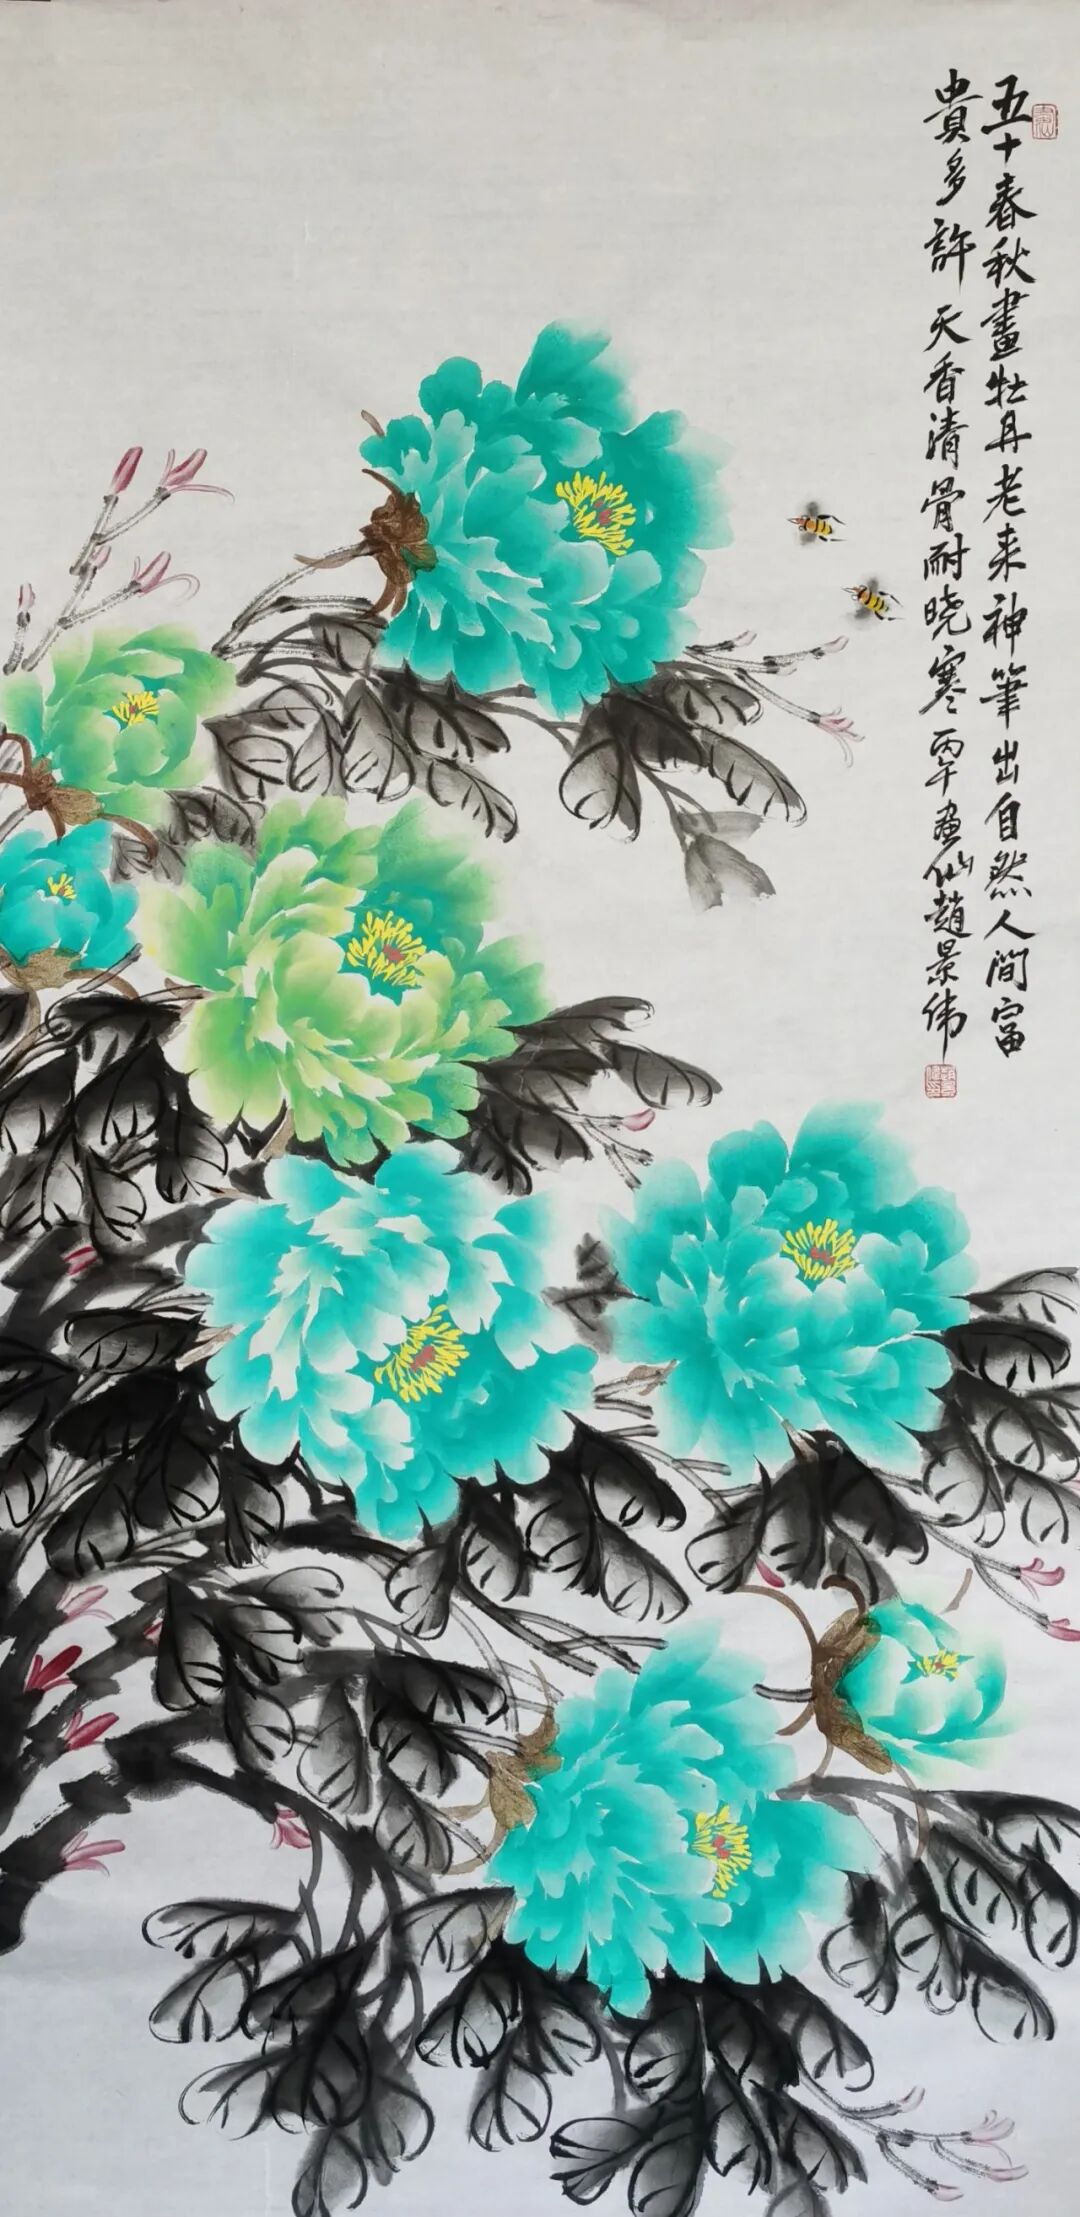 五十春秋畫牡丹老来神筆出自然人間富
貴多許天香清骨耐晓寒丙午画仙趙景伟